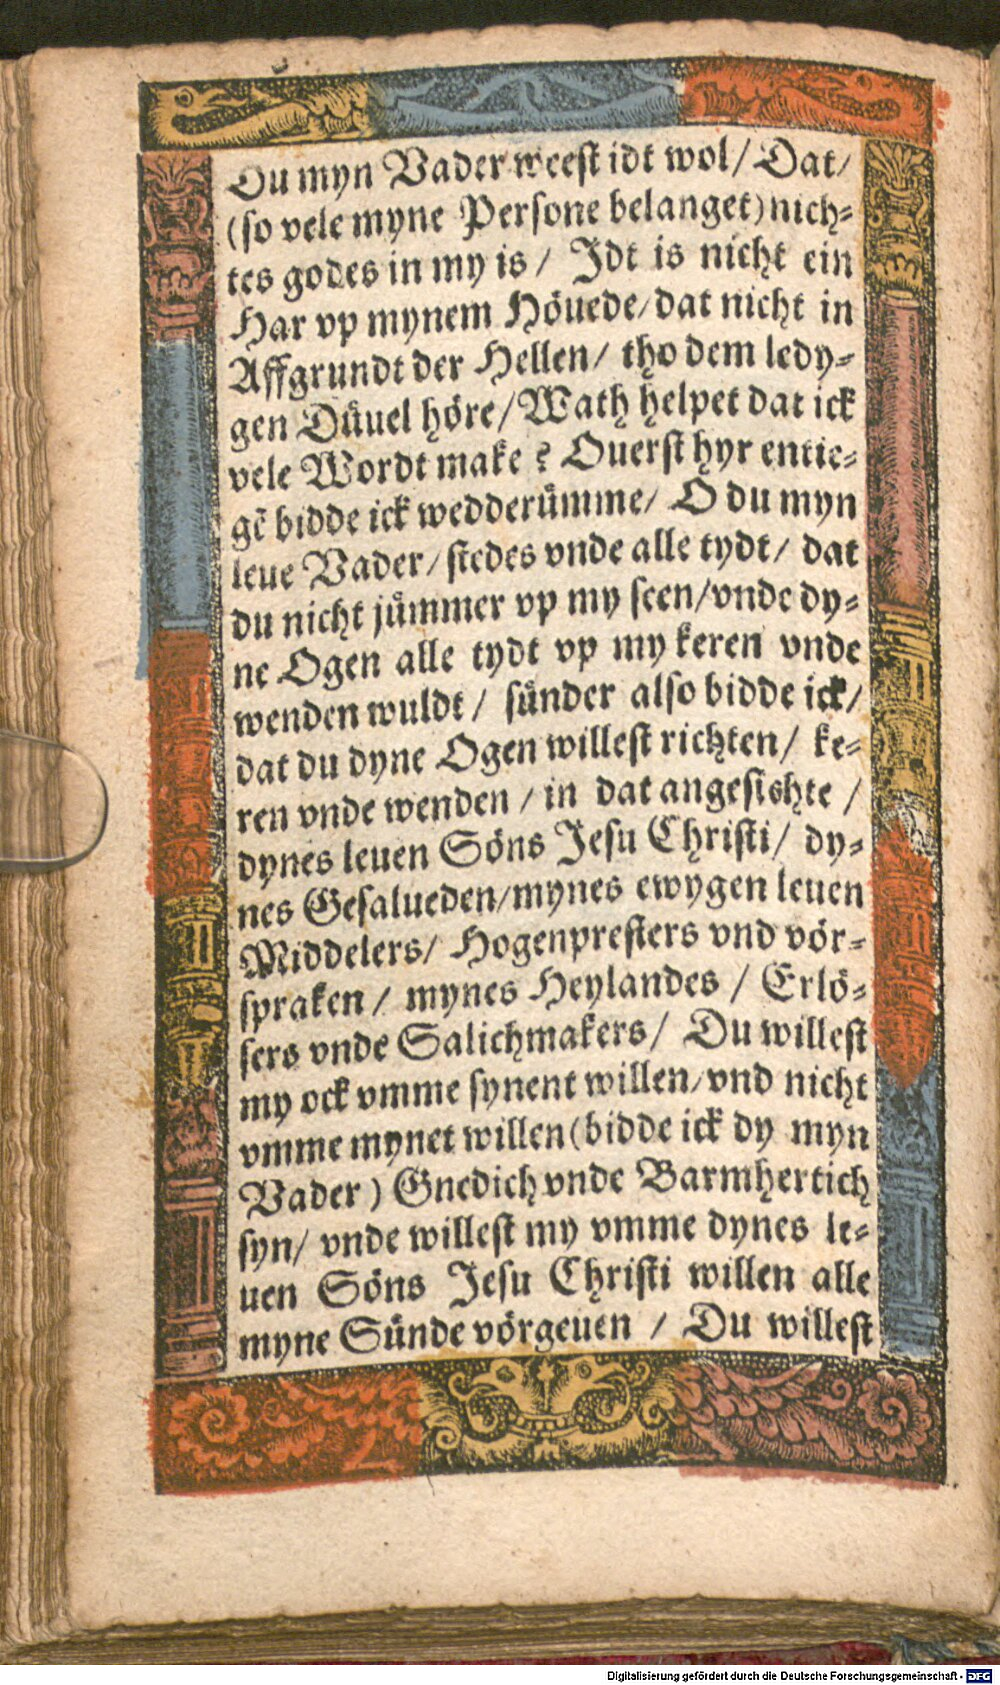 Du myn Vader weest idt wol/ Dat/
(so vele myne Persone belanget) nich⸗
tes godes in my is/ Idt is nicht ein
Har vp mynem Höuede/ dat nicht in
Affgrundt der Hellen/ tho dem ledy⸗
gen Düuel höre/ Wath helpet dat ick
vele Wordt make? Ouerst hyr entie⸗
gē bidde ick wedderümme/ O du myn
leue Vader/ stedes vnde alle tydt/ dat
du nicht jümmer vp my seen/ vnde dy⸗
ne Ogen alle tydt vp my keren vnde
wenden wuldt/ sünder also bidde ick/
dat du dyne Ogen willest richten/ ke⸗
ren vnde wenden/ in dat angesishte/
dynes leuen Söns Jesu Christi/ dy⸗
nes Gesalueden/ mynes ewygen leuen
Middelers/ Hogenpresters vnd vör⸗
spraken/ mynes Heylandes/ Erlö⸗
sers vnde Salichmakers/ Du willest
my ock vmme synent willen/ vnd nicht
vmme mynet willen (bidde ick dy myn
Vader) Gnedich vnde Barmhertich
syn/ vnde willest my vmme dynes le⸗
uen Söns Jesu Christi willen alle
myne Sünde vörgeuen/ Du willest
Digitalisierung gefördert durch die Deutsche Forschungsgemeinschaft - DFG